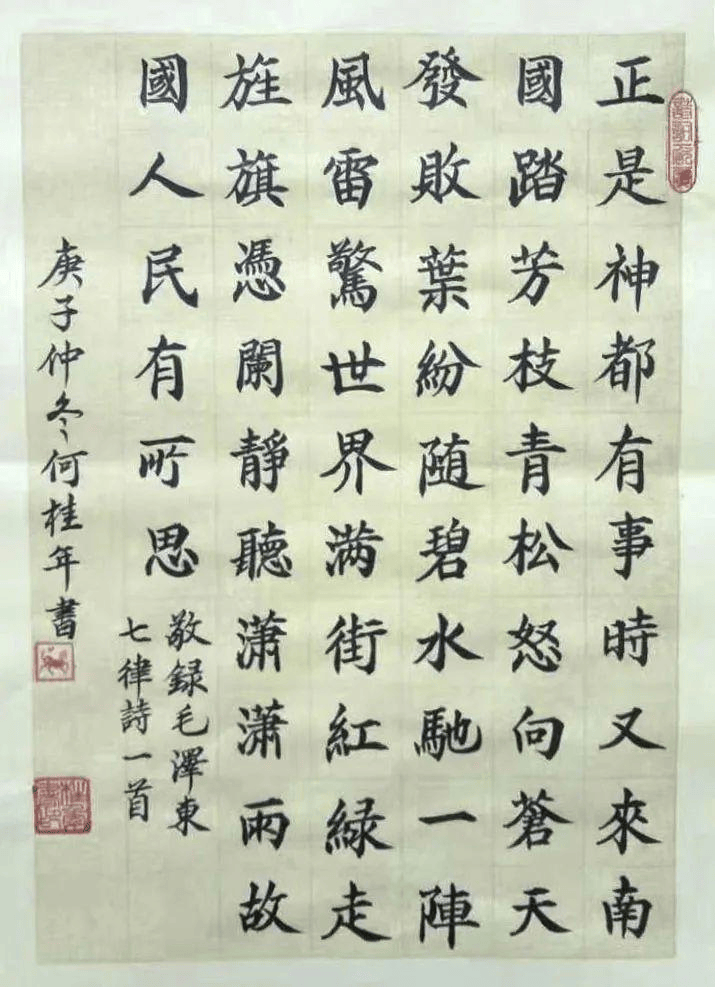 正是神都有事時又來南
國踏芳枝青松怒向蒼天
發敗葉紛随碧水馳一陣
風雷驚世界满街紅綠走
旌旗憑闌靜聽潇潇雨故
國人民有所思
敬録毛澤東
七律詩一首
庚子仲冬何桂年書